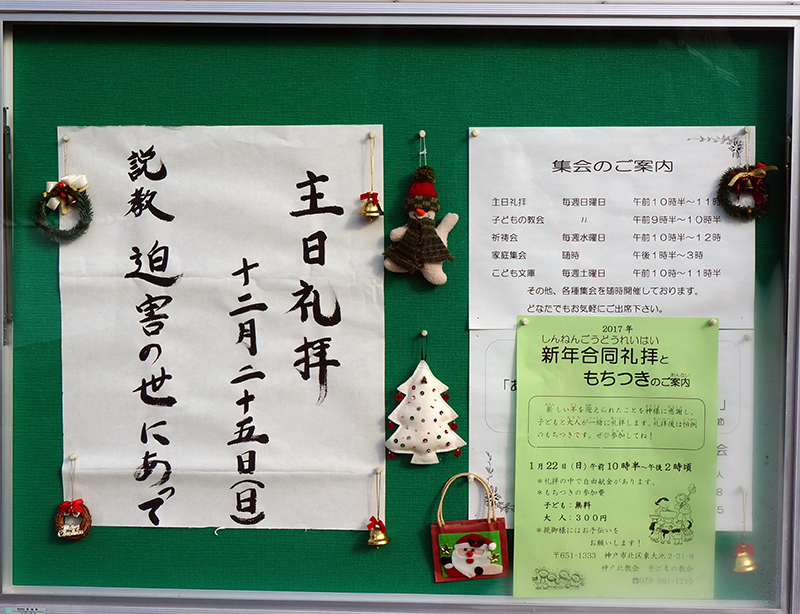 主日礼拝
十二月二十五日(日)
説教 迫害の世にあって
集会のご案内
主日礼拝 毎週日曜日 午前10時半～11時
子どもの教会 〃 午前9時半～10時
祈祷会 毎週水曜日 午前10時半～12時
家庭集会 随時 午後1時半～3時
こども文庫 毎週土曜日 午前10時～11時半
その他、各種集会を随時開催しております。
どなたでもお気軽にご出席下さい。
2017年
しんねんごうどうれいはい
新年合同礼拝と
あんない
もちつきのご案内
新しい年を迎えられたことを神様に感謝し、
子どもと大人が一緒に礼拝します。礼拝後は恒例
のもちつきです。ぜひ参加してね！
1月22日(日)午前10時半～午後2時頃
＊礼拝の中で自由献金があります。
＊もちつきの参加費
子ども：無料
大 人：300円
＊親御様にはお手伝いを
お願いします！
〒651-1333 神戸市北区東大池2-21-8
神戸北教会 子どもの教会
☎078-981-4215